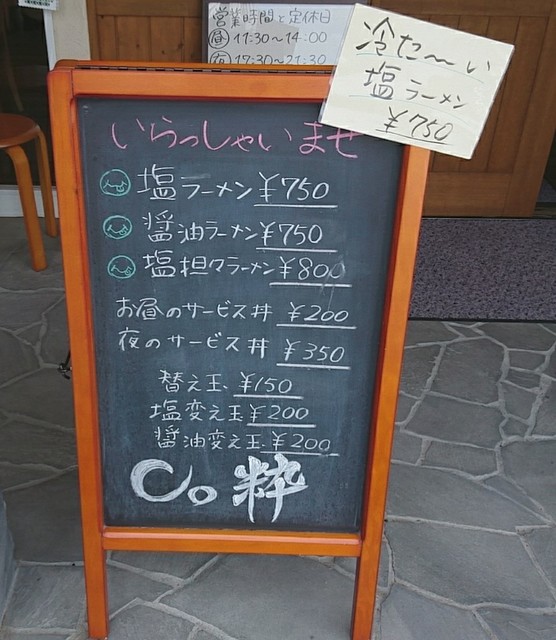 営業時間と定休日
昼 11:30〜14:00
夜 17:30〜21:30
冷た〜い
塩ラーメン
¥750
いらっしゃいませ
塩ラーメン ¥750
醤油ラーメン ¥750
塩担々ラーメン ¥800
お昼のサービス丼 ¥200
夜のサービス丼 ¥350
替え玉 ¥150
塩変え玉 ¥200
醤油変え玉 ¥200
粋